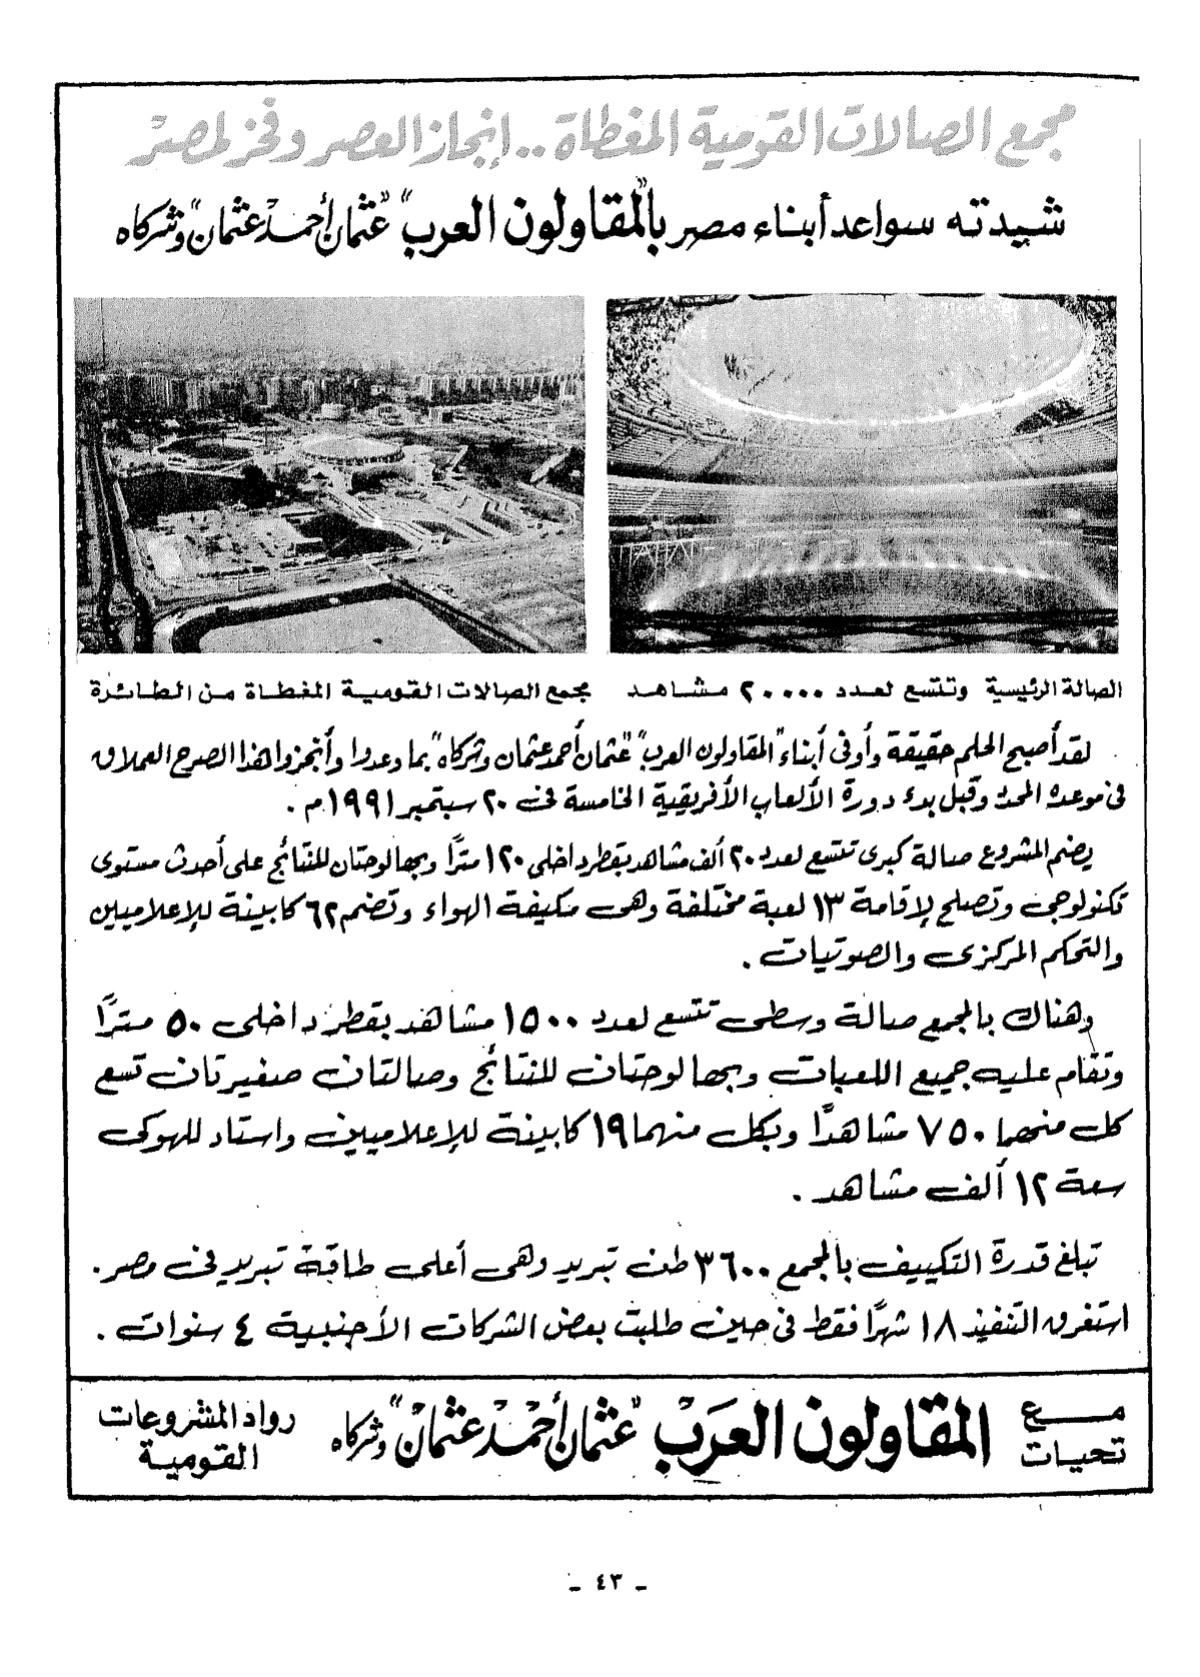 مجمع الصالات القومية المغطاة .. إنجاز العصر وفخر لمصر
شيدته سواعد أبناء مصر بالمقاولون العرب "عثمان أحمد عثمان" وشركاه
الصالة الرئيسية وتتسع لعدد ٢٠٠٠٠ مشاهد
مجمع الصالات القومية المغطاة من الطائرة
لقد أصبح الحلم حقيقة وأوفى أبناء "المقاولون العرب" "عثمان أحمد عثمان وشركاه" بما وعدوا وأنجزوا هذا الصرح العملاق
فى موعده المحدد وقبل بدء دورة الألعاب الأفريقية الخامسة فى ٢٠ سبتمبر ١٩٩١م .
يضم المشروع صالة كبرى تتسع لعدد ٢٠ ألف مشاهد بقطر داخلى ١٢٠ مترًا وبها لوحتان للنتائج على أحدث مستوى
تكنولوجى وتصلح لإقامة ١٣ لعبة مختلفة وهى مكيفة الهواء وتضم ٦٢ كابينة للإعلاميين
والتحكم المركزى والصوتيات .
وهناك بالمجمع صالة وسطى تتسع لعدد ١٥٠٠ مشاهد بقطر داخلى ٥٠ مترًا
وتقام عليه جميع اللعبات وبها لوحتان للنتائج وصالتان صغيرتان تسع
كل منهما ٧٥٠ مشاهدًا وبكل منهما ١٩ كابينة للإعلاميين واستاد للهوكى
سعة ١٢ ألف مشاهد .
تبلغ قدرة التكييف بالمجمع ٣٦٠٠ طن تبريد وهى أعلى طاقة تبريد فى مصر.
استغرق التنفيذ ١٨ شهرًا فقط فى حين طلبت بعض الشركات الأجنبية ٤ سنوات .
مع
تحيات
المقاولون العرب "عثمان أحمد عثمان" وشركاه
رواد المشروعات
القومية
- ٤٣ -